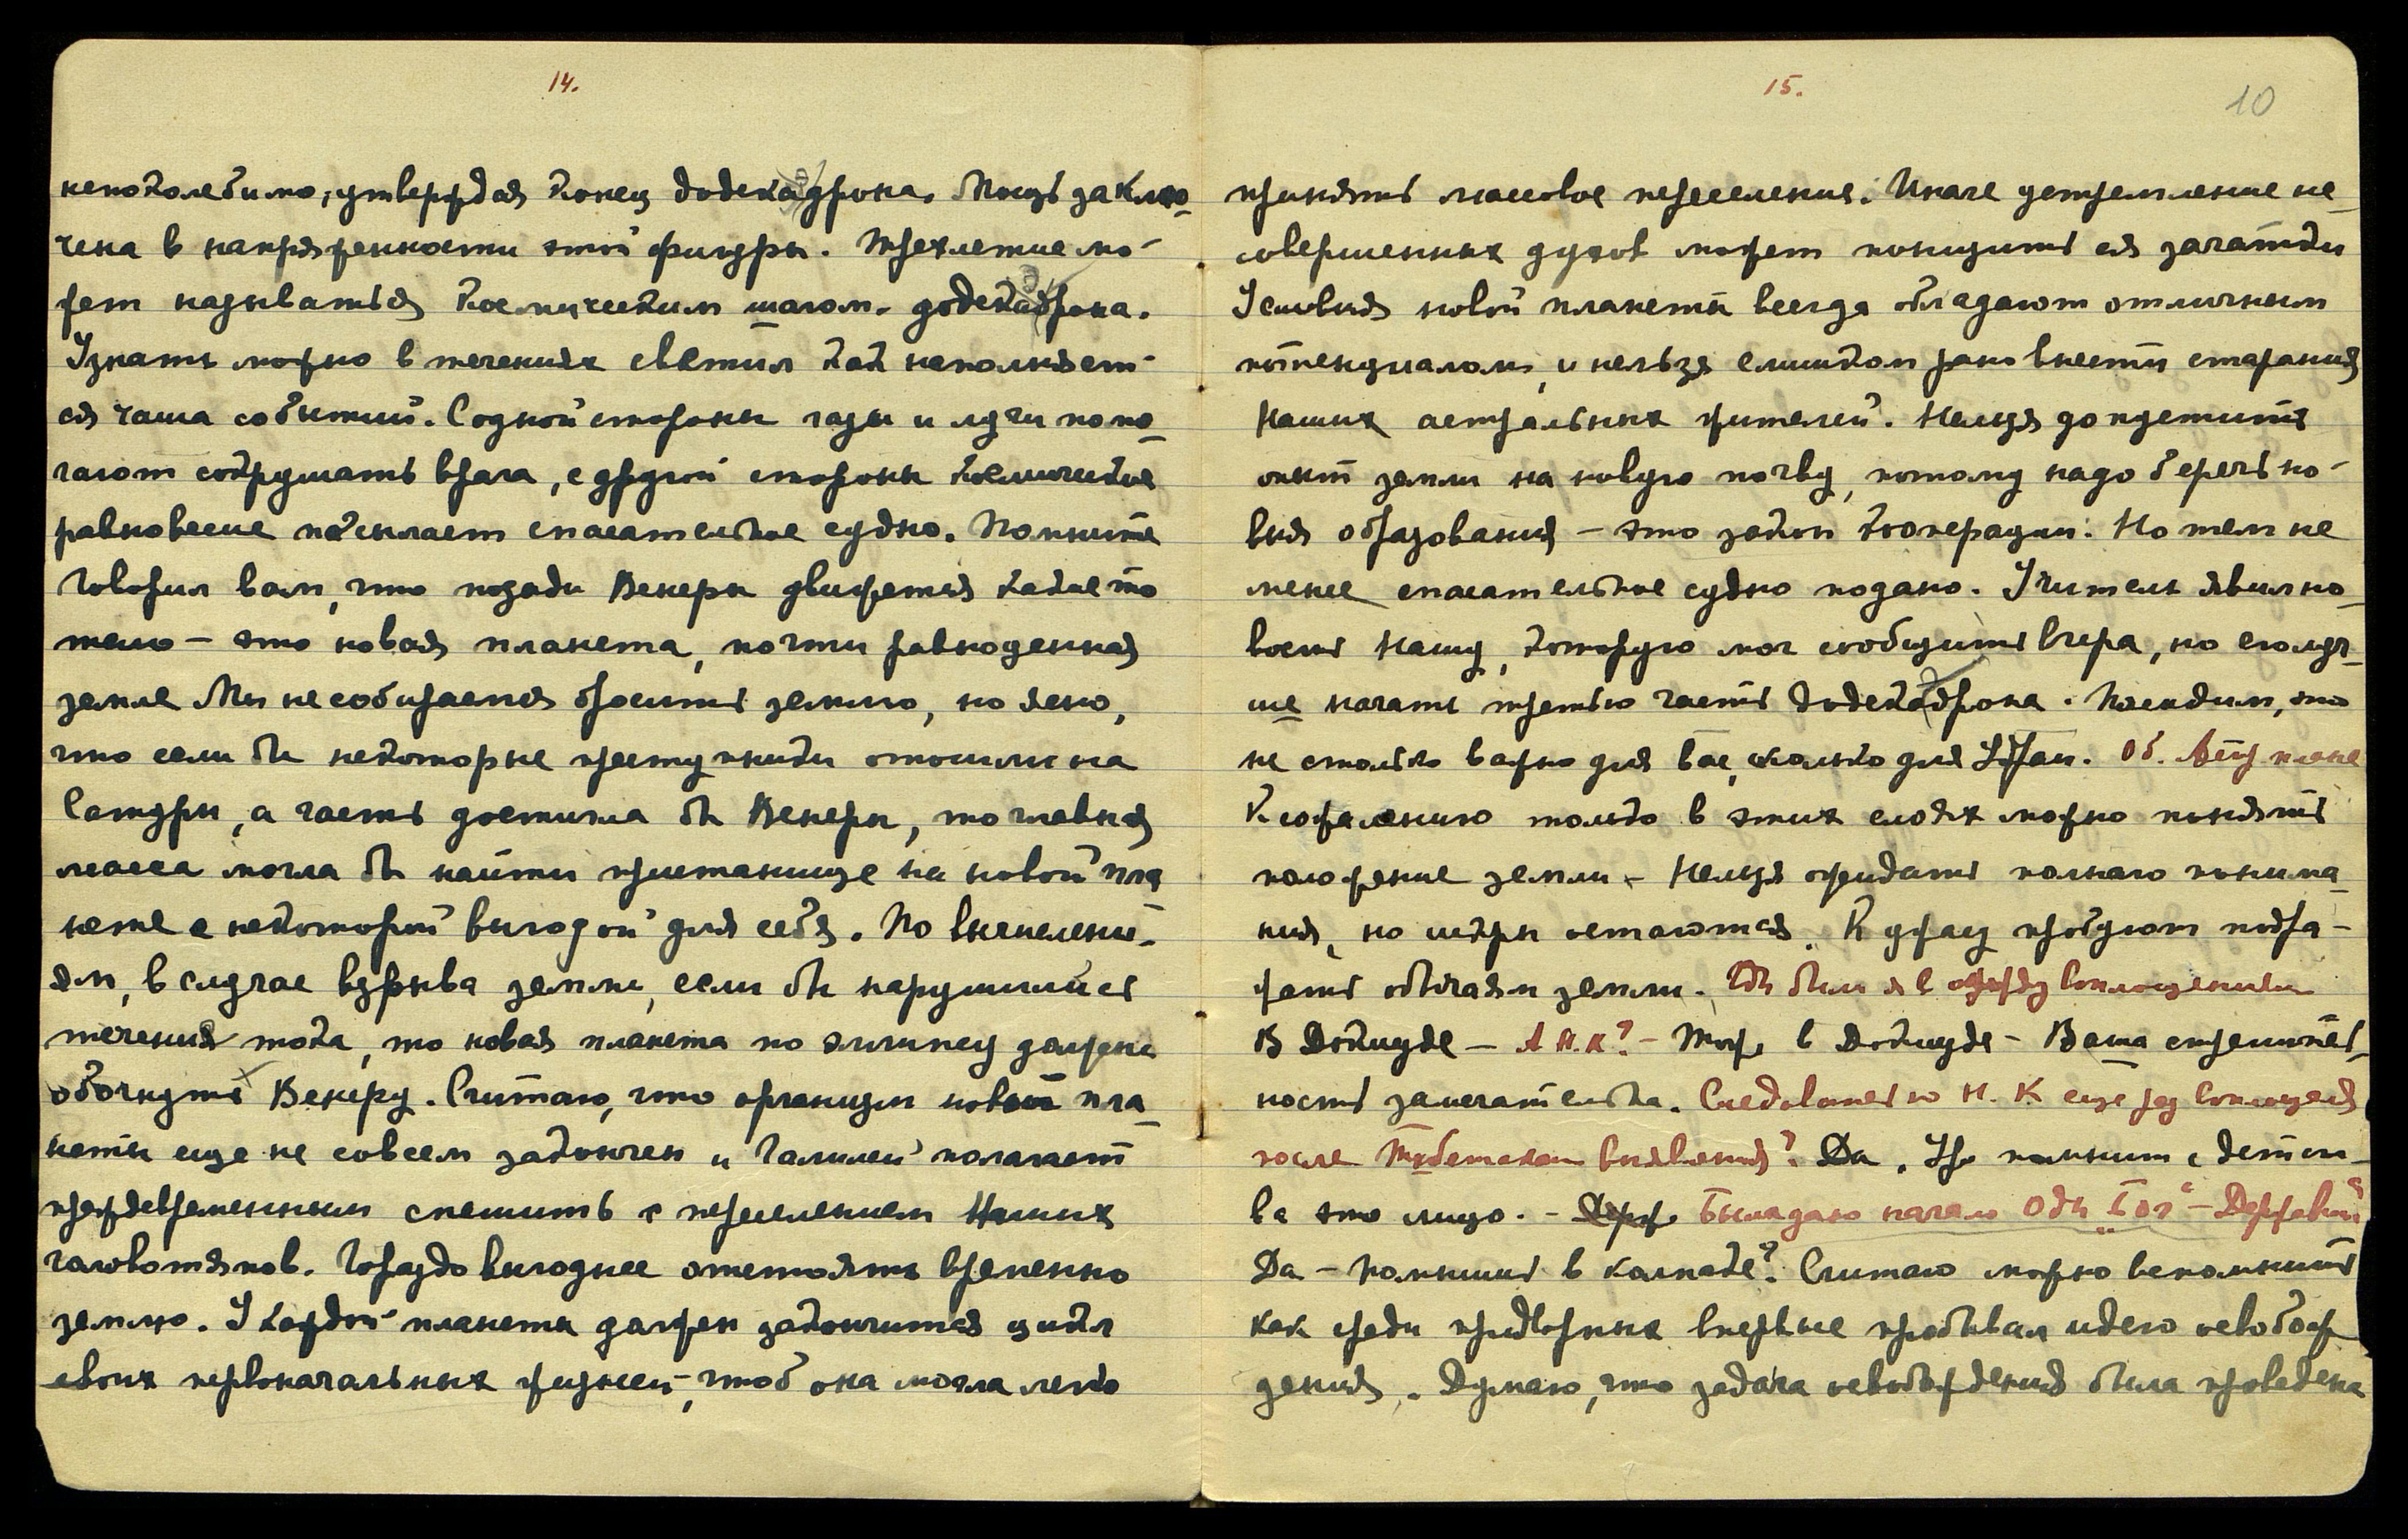 14.
непоколебимо, утверждая конец додекаэдрона. Мощь заклю-
чена в напряженности этой фигуры. Трехлетие мо-
жет называться космическим шагом додекаэдрона.
Узнать можно в течениях светил как наполняет-
ся чаша событий. С одной стороны газы и лучи помо-
гают сокрушать врага, с другой стороны космическое
равновесие посылает спасательное судно. Помните
Говорил вам, что позади Венеры движется какое то
тело – это новая планета, почти равноценная
земле Мы не собираемся бросить землю, но ясно,
что если бы некоторые преступники отошли на
Сатурн, а часть достигла бы Венеры, то главная
масса могла бы найти пристанище на новой пла
нете с некоторой выгодой для себя. По вычислени-
ям, в случае взрыва земли, если бы нарушились
течения тока, то новая планета по эллипсу должна
обогнуть Венеру. Считаю, что организм новой пла-
неты еще не совсем закончен и Галилей полагает
преждевременным спешить с переселением Наших
чаловотянов. Гораздо выгоднее отстоять временно
землю. У каждой планеты должен закончиться цикл
своих первоначальных жизней, чтоб она могла легко
15.
10
принять массовое переселение. Иначе устремление не-
совершенных духов может понизить ея зачатки
Условия новой планеты всегда обладают отличным
потенциалом, и нельзя слишком рано внести старания
Наших астральных жителей. Нельзя допустить
опыт земли на новую почву, потому надо беречь но-
выя образования – это закон кооперации. Но тем не
менее спасательное судно подано. Учитель явил но-
вость Нашу, которую мог сообщить вчера, но он луч-
ше начать третью часть додекаэдрона. Поясним, это
не столько важно для вас, сколько для Уран. Об. Астр плане
К сожалению только в этих слоях можно понять
положение земли – Нельзя ожидать полнаго понима-
ния, но искры остаются. К ужасу пробуют подра-
жать обычаям земли. Где был я в между воплощениями
В Докиуде – А Н.К? – Тоже в Докиуде – Ваша стремитель-
ность замечательна. Следовательно Н. К еще раз воплощался
после Тибетскаго выявления? Да. Ур помнит с детст-
ва это лицо. – Было дано начало Оды „Бог" – Державин?
Да – Помнишь в колпаке? Считаю можно вспомнить
как среди придворных впервые пробивал идею освобож
дения. Думаю, что задача освобождения была проведена